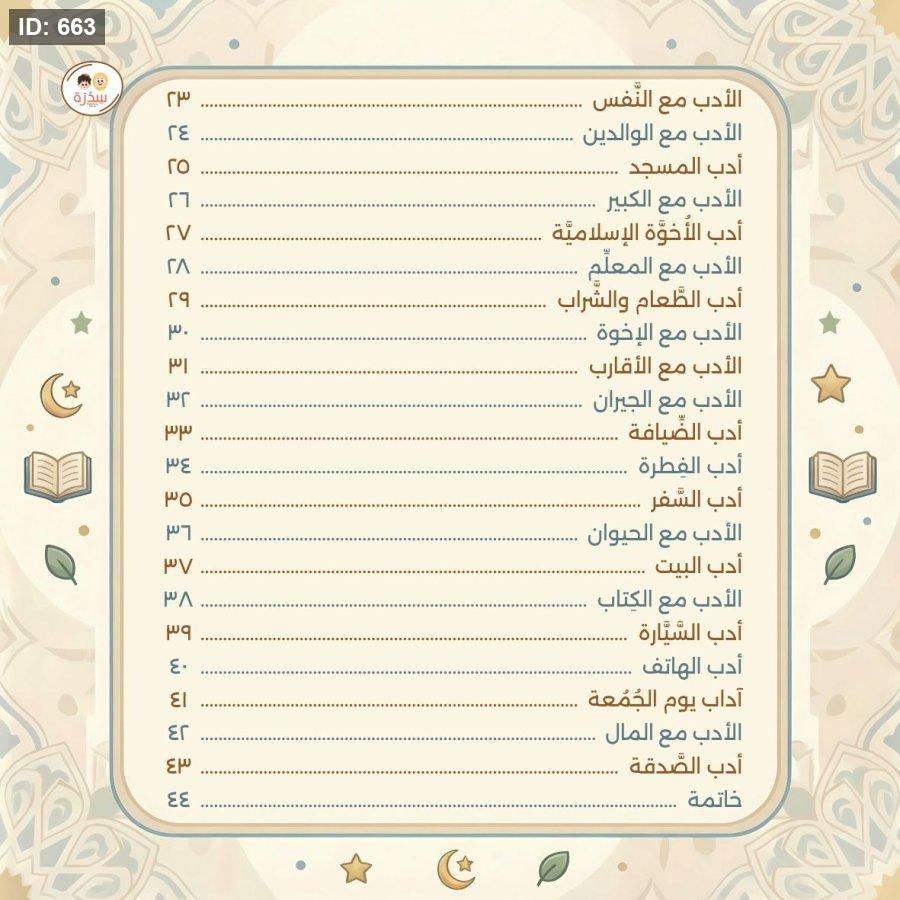 ID: 663
سِدْرَة
الأدب مع النَّفس ........ ٢٣
الأدب مع الوالدين ........ ٢٤
أدب المسجد ........ ٢٥
الأدب مع الكبير ........ ٢٦
أدب الأُخوَّة الإسلاميَّة ........ ٢٧
الأدب مع المعلِّم ........ ٢٨
أدب الطَّعام والشَّراب ........ ٢٩
الأدب مع الإخوة ........ ٣٠
الأدب مع الأقارب ........ ٣١
الأدب مع الجيران ........ ٣٢
أدب الضِّيافة ........ ٣٣
أدب الفِطرة ........ ٣٤
أدب السَّفر ........ ٣٥
الأدب مع الحيوان ........ ٣٦
أدب البيت ........ ٣٧
الأدب مع الكِتاب ........ ٣٨
أدب السَّيَّارة ........ ٣٩
أدب الهاتف ........ ٤٠
آداب يوم الجُمُعة ........ ٤١
الأدب مع المال ........ ٤٢
أدب الصَّدقة ........ ٤٣
خاتمة ........ ٤٤